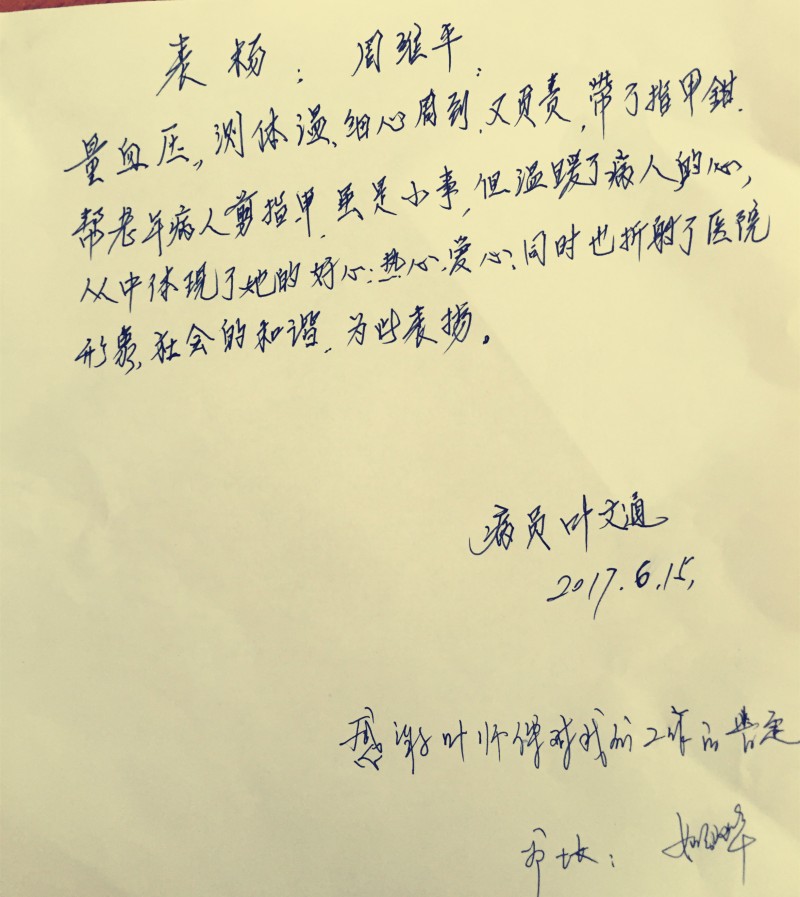 表杨：周维平：
量血压，测体温、细心周到，又负责，带了指甲钳．
帮老年病人剪指甲，虽是小事，但温暖了病人的心，
从中体现了她的好心；热心，爱心；同时也折射了医院
形象，社会的和谐．为此表扬。
病员叶文通
2017.6.15，
感谢叶师傅对我们工作的肯定
护士长：